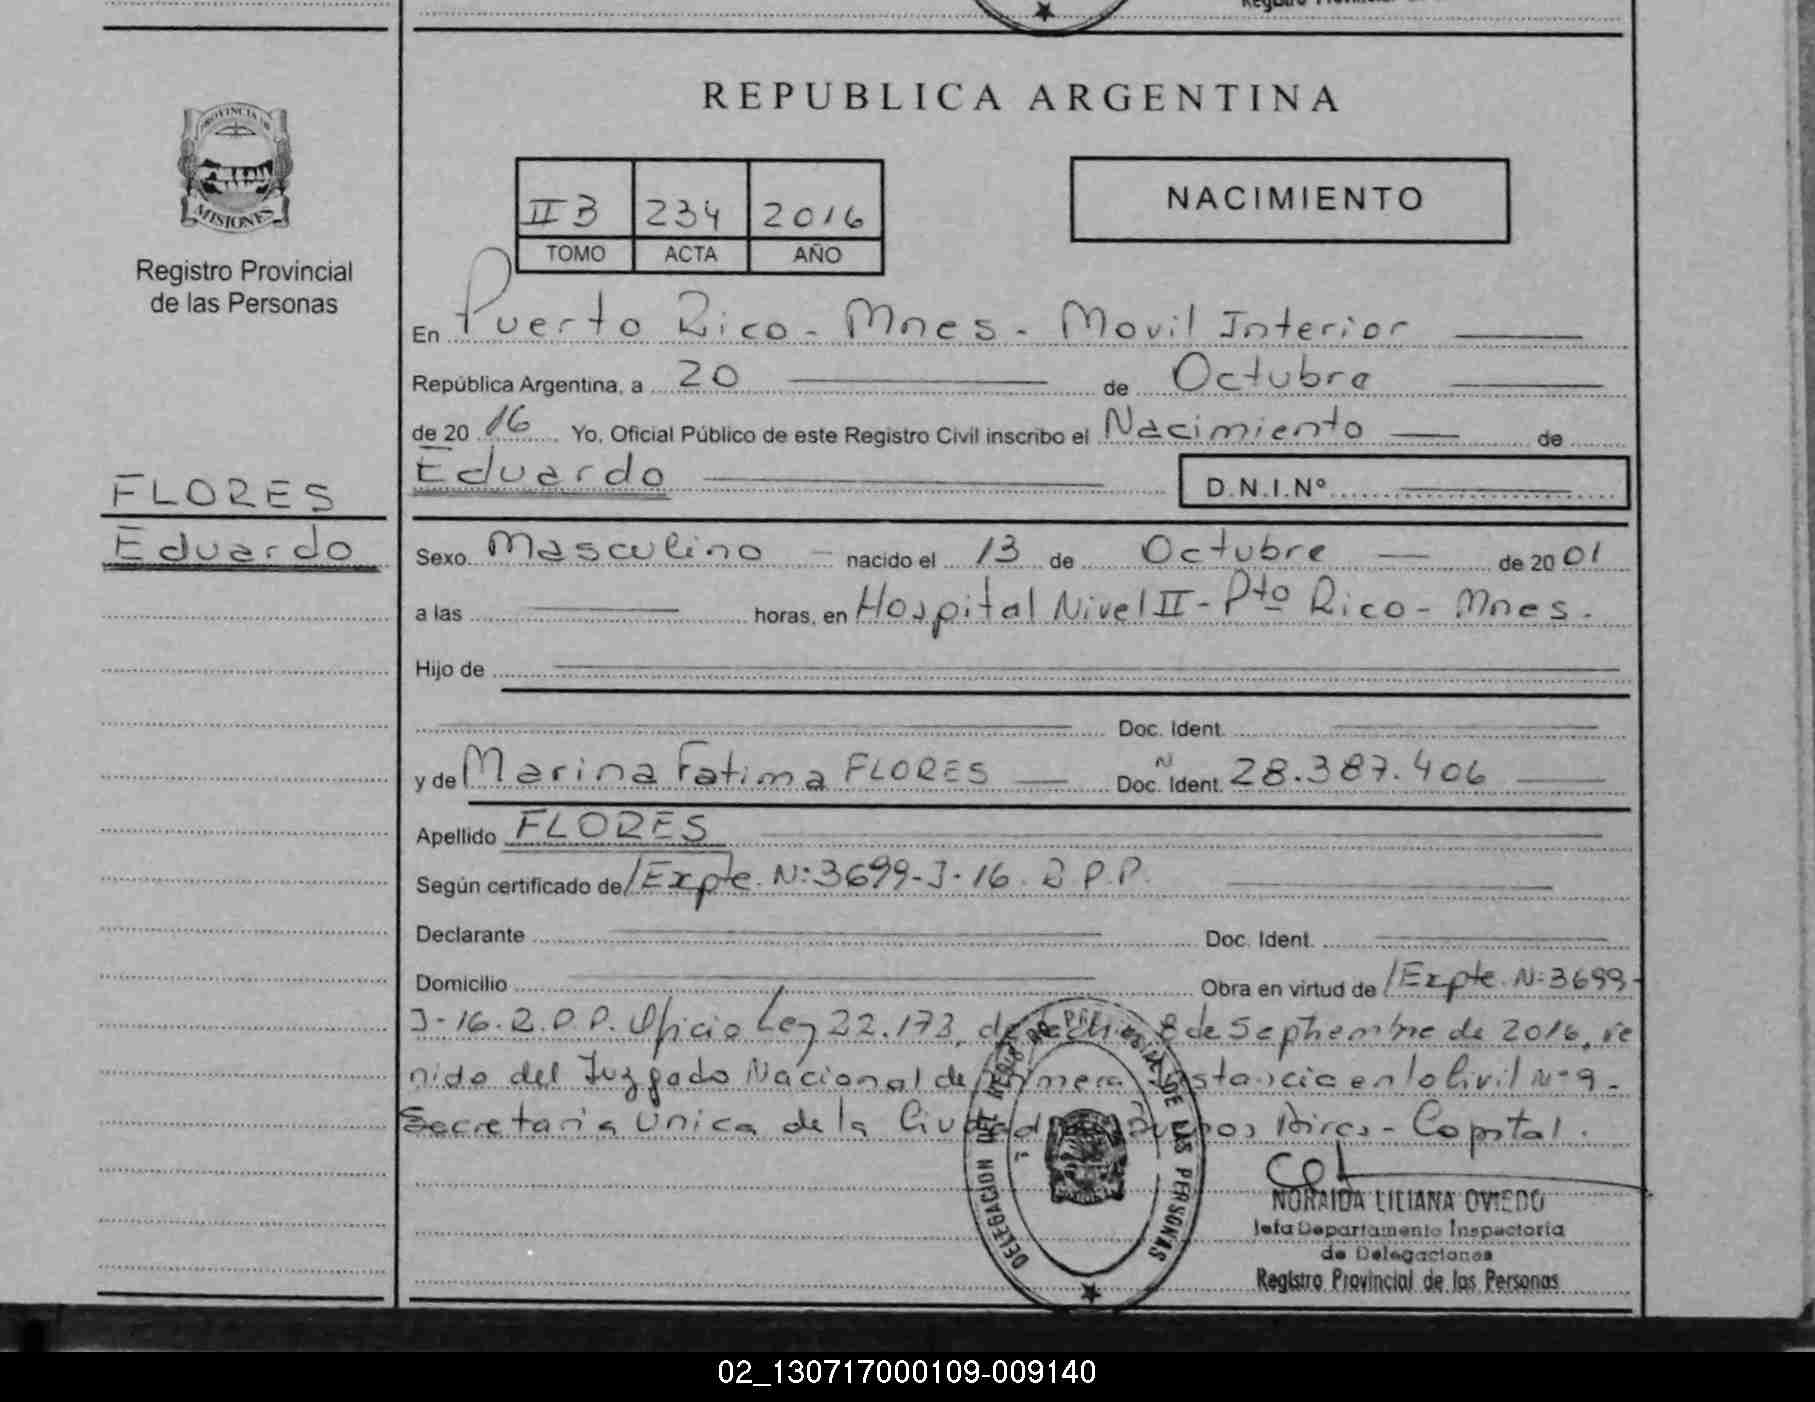 REPUBLICA ARGENTINA
PROVINCIA DE
MISIONES
Registro Provincial
de las Personas
II B 234 2016
TOMO ACTA AÑO
NACIMIENTO
En Puerto Rico - Mnes - Movil Interior
República Argentina, a 20 de Octubre
de 20 16 Yo, Oficial Público de este Registro Civil inscribo el Nacimiento de
Eduardo D.N.I.Nº
FLORES
Eduardo
Sexo Masculino nacido el 13 de Octubre de 20 01
a las horas, en Hospital Nivel II - Pto Rico - Mnes.
Hijo de
Doc. Ident.
y de Marina Fatima FLORES Doc. Ident. 28.387.406
Apellido FLORES
Según certificado de/Expte. N:3699-J-16. R.P.P.
Declarante Doc. Ident.
Domicilio Obra en virtud de /Expte. N:3699-
J-16.R.P.P. Oficio Ley 22.172, de 8 de Septiembre de 2016, ve
nido del Juzgado Nacional de Primera Instancia en lo Civil Nº 9-
Secretaria Unica de la Ciudad Buenos Aires - Capital.
DELEGACION DEL REGISTRO PROVINCIAL DE LAS PERSONAS
NORAIDA LILIANA OVIEDO
Jefa Departamento Inspectoria
de Delegaciones
Registro Provincial de las Personas
02_130717000109-009140